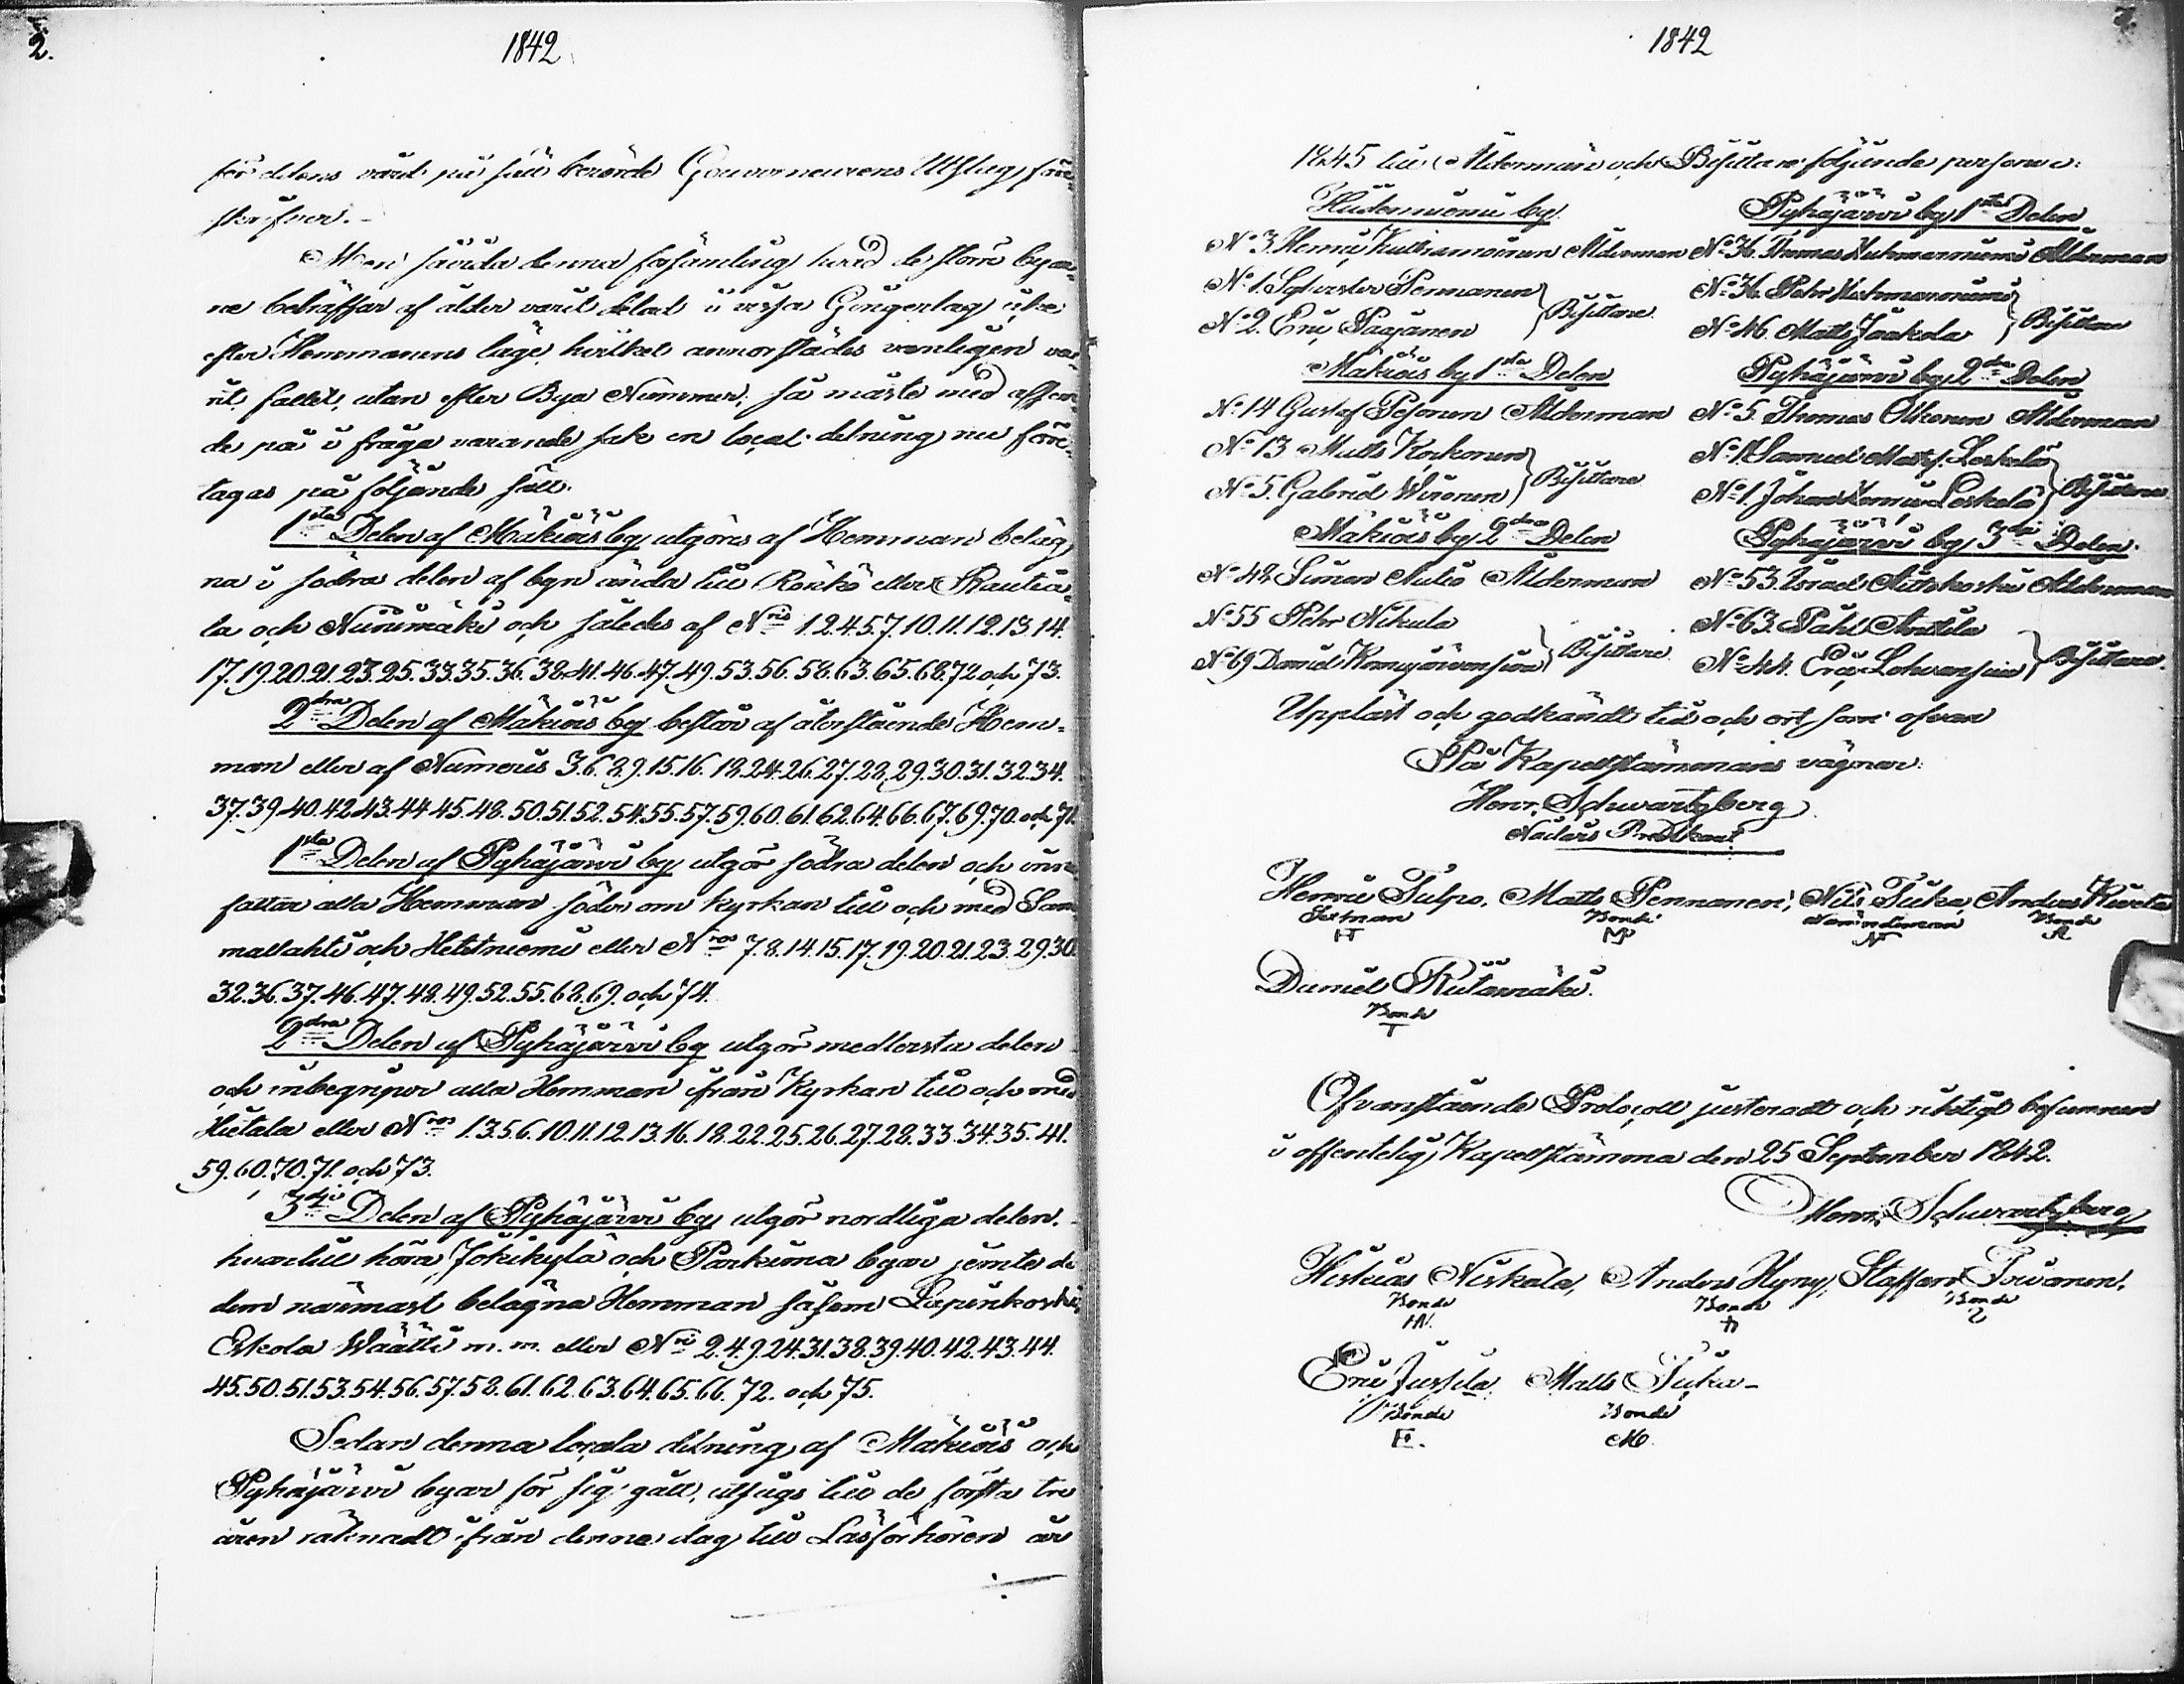 2.
1842
för detens vård på sätt berörde Gouverneurens Utslag före-
skrifver.-
Men såvida denna församling hvad de större byar-
ne beträffar af ålder varit delad i vissa Gångertag icke
efter Hemmanens läge, hvilket annorstädes vanligen va-
rit fallet, utan efter Bya Nummer; så måste med afseen-
de på i fråga varande sak en local delning nu före-
tagas på följande sätt.
1sta Delen af Mäkiöis by utgöres af Hemman beläg-
na i södra delen af byn ända till Rönkö eller Rautia-
la och Niinimäki och således af Nris 1.2.4.5.7.10.11.12.13.14.
17.19.20.21.23.25.33.35.36.38.41.46.47.49.53.56.58.63.65.68.72 och 73.
2dra Delen af Mäkiöis by består af återstående Hem-
man eller af Numeris 3.6.8.9.15.16.18.24.26.27.28.29.30.31.32.34.
37.39.40.42.43.44.45.48.50.51.52.54.55.57.59.60.61.62.64.66.67.69.70. och 71.
1sta Delen af Pyhäjärvi by utgör södra delen och
fattar alla Hemman söder om kyrkan till och med Sam
mallahti och Hietniemi eller Nros 7.8.14.15.17.19.20.21.23.29.30.
32.36.37.46.47.48.49.52.55.68.69. och 74.
2dra Delen af Pyhäjärvi by utgör medlersta delen
och inbegriper alla Hemman ifrån Kyrkan till och med
Hietala eller Nros 1.3.5.6.10.11.12.13.16.18.22.25.26.27.28.33.34.35.41.
59.60.70.71. och 73.
3dje Delen af Pyhäjärvi by utgör nordliga delen.
hvartill höra Jokikylä och Parkima byar jemte de
dem närmast belägna Hemman såsom Lepinkoski,
Eskola Wäätti m.m. eller Nri 2.4.9.24.31.38.39.40.42.43.44.
45.50.51.53.54.56.57.58.61.62.63.64.65.66.72. och 75.
Sedan denna locala delning af Mäkiöis och
Pyhäjärvi byar för sig gått, utsågs till de första tre
åren räknadt ifrån denna dag till Läsförhören år
1842
1845 till Åldermän och Bisittare följande personer:
Hiidenniemi by.
N:o 3. Henric Kulhianoinen Ålderman
N:o 1. Sylvester Pennanen
N:o 2. Eric Paajanen } Bisittare.
Mäkiöis by 1sta Delen
N:o 14 Gustaf Pesonen Ålderman
N:o 13 Matts Korkonen
N:o 5. Gabriel Wironen } Bisittare
Mäkiöis by 2dra Delen
N:o 48 Simon Autio Ålderman
N:o 55 Pehr Nikula
N:o 69 Daniel } Bisittare.
Pyhäjärvi by 1sta Delen
N:o 36. Thomas Ålderman
N:o 36. Pehr
N:o 46. Matts Jaakola } Bisittare
Pyhäjärvi by 2dra Delen
N:o 5. Thomas Olkonen Ålderman
N:o 1. Samuel Mattss. Leskelä
N:o 1. Johan Henric Leskelä } Bisittare
Pyhäjärvi by 3dje Delen.
N:o 53. Israel Aittokoski Ålderman
N:o 63. Påhl Anttila
N:o 44. Eric Lohvansuu } Bisittare.
Uppläst och godkändt tid och ort som ofvan
På Kapellstämmans vägnar:
Henr. Schwartzberg
Nådårs Predikant
Henric Tulpo, Matts Pennanen, Nils Tiika, Anders Kiveta
Bonde Nämndeman Bonde
HT MP N A
Daniel Riitamäki.
Bonde
T
Ofvanstående Protocoll justeradt och riktigt befunnen
i offentelig Kapellstämma den 25 September 1842.
Henr. Schwartzberg
Hiskias Niskala, Anders Hyny, Staffan Toivanen.
Bonde Bonde Bonde
HN.
Eric Jussila Matts Tiika-
Bonde Bonde
E. M.